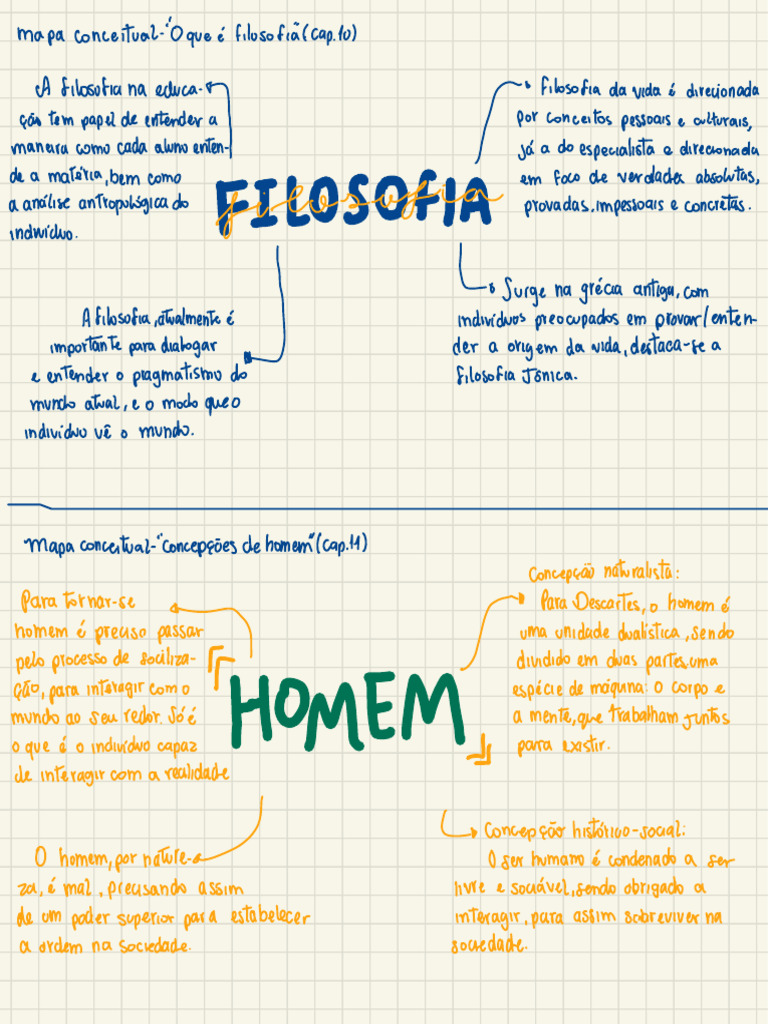 mapa conceitual-"O que é filosofia"(cap.10)
A filosofia na educa-
ção tem papel de entender a
maneira como cada aluno enten-
de a matéria, bem como
a análise antropológica do
indivíduo.
Filosofia da vida é direcionada
por conceitos pessoais e culturais,
já a do especialista e direcionada
em foco de verdades absolutas,
provadas, impessoais e concretas.
FILOSOFIA
filosofia
A filosofia, atualmente é
importante para dialogar
e entender o pragmatismo do
mundo atual, e o modo que o
indivíduo vê o mundo.
Surge na grécia antiga, com
indivíduos preocupados em provar/enten-
der a origem da vida, destaca-se a
filosofia Jônica.
Mapa conceitual-"Concepções de homem"(cap.11)
Para tornar-se
homem é preciso passar
pelo processo de sociliza-
ção, para interagir com o
mundo ao seu redor. Só é
o que é o indivíduo capaz
de interagir com a realidade
Concepção naturalista:
Para Descartes, o homem é
uma unidade dualística, sendo
dividido em duas partes, uma
espécie de máquina: o corpo e
a mente, que trabalham juntos
para existir.
HOMEM
O homem, por nature-
za, é mal, precisando assim
de um poder superior para estabelecer
a ordem na sociedade.
Concepção histórico-social:
O ser humano é condenado a ser
livre e sociável, sendo obrigado a
interagir, para assim sobreviver na
sociedade.